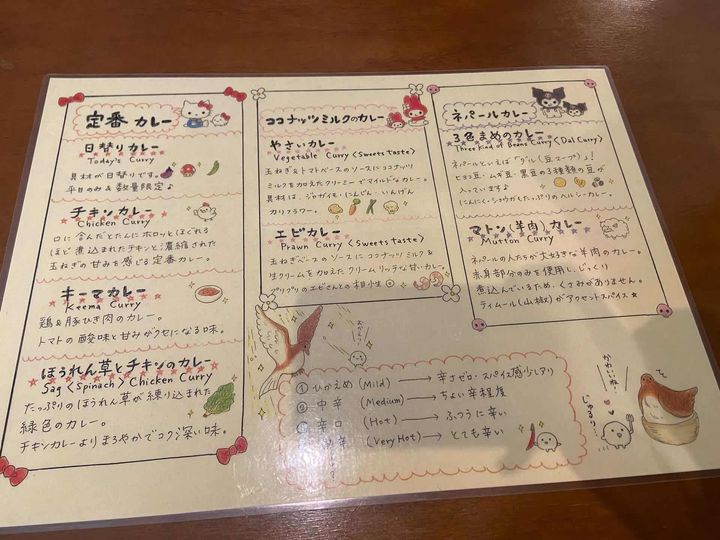 定番 カレー
日替りカレー
Today's Curry
具材が日替りです。
平日のみ&数量限定♪
チキンカレー
Chicken Curry
口に含んだとたんにホロッとほぐれる
ほど煮込まれたチキンと濃縮された
玉ねぎの甘みを感じる定番カレー。
キーマカレー
Keema Curry
鶏&豚ひき肉のカレー。
トマトの酸味と甘みがクセになる味。
ほうれん草とチキンのカレー
Sag <Spinach> Chicken Curry
たっぷりのほうれん草が練り込まれた
緑色のカレー。
チキンカレーよりまろやかでコク深い味。
ココナッツミルクのカレー
やさいカレー
Vegetable Curry <Sweets taste>
玉ねぎ&トマトベースのソースにココナッツ
ミルクを加えたクリーミーでマイルドなカレー。
具材は、ジャガイモ・にんじん・いんげん
カリフラワー。
エビカレー
Prawn Curry <Sweets taste>
玉ねぎベースのソースにココナッツミルク&
生クリームを加えたクリームリッチな甘いカレー。
プリプリのエビさんとの相性◎
ネパールカレー
3色まめのカレー
Three kind of Beans Curry <Dal Curry>
ネパールといえば「ダル(豆スープ)」!
ヒヨコ豆・ムギ豆・黒豆の3種類の豆が
入っています♪
にんにく・ショウガたっぷりのヘルシーカレー。
マトン(羊肉)カレー
Mutton Curry
ネパールの人たちが大好きな羊肉のカレー。
赤身部分のみを使用し、じっくり
煮込んでいるため、くさみがありません。
ティムール(山椒)がアクセントスパイス☆
① ひかえめ (Mild) → 辛さゼロ・スパイス感少しアリ
② 中辛 (Medium) → ちょい辛程度
③ 辛口 (Hot) → ふつうに辛い
辛 (Very Hot) → とても辛い
かわいいね…
じゅるり…